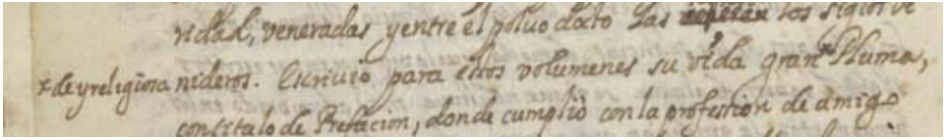 ridad, veneradas y entre el polvo docto las los siglos ve
r de y religiosa nideros. Escrivio para estos volumenes su vida gran Pluma,
con titulo de Prefacion, donde cumpliò con la profession de amigo